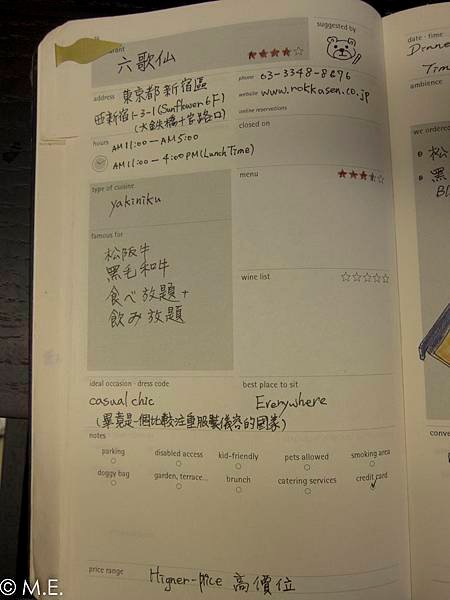 suggested by
六歌仙
address 東京都新宿區
西新宿1-3-1(Sunflower 6F)
(大鉄橋十字路口)
phone 03-3348-8676
website www.rokkasen.co.jp
online reservations
hours AM 11:00 — AM 5:00
AM 11:00 — 4:00PM (Lunch Time)
closed on
type of cuisine
yakiniku
menu
famous for
松阪牛
黑毛和牛
食べ放題+
飲み放題
wine list
ideal occasion · dress code
casual chic
(畢竟是一個比較注重服裝儀容的國家)
best place to sit
Everywhere
notes
parking
disabled access
kid-friendly
pets allowed
smoking area
doggy bag
garden, terrace...
brunch
catering services
credit card
price range Higner-price 高價位
date · time
Dinne
Tim
ambience
we ordered
松
黑
conve
© M.E.